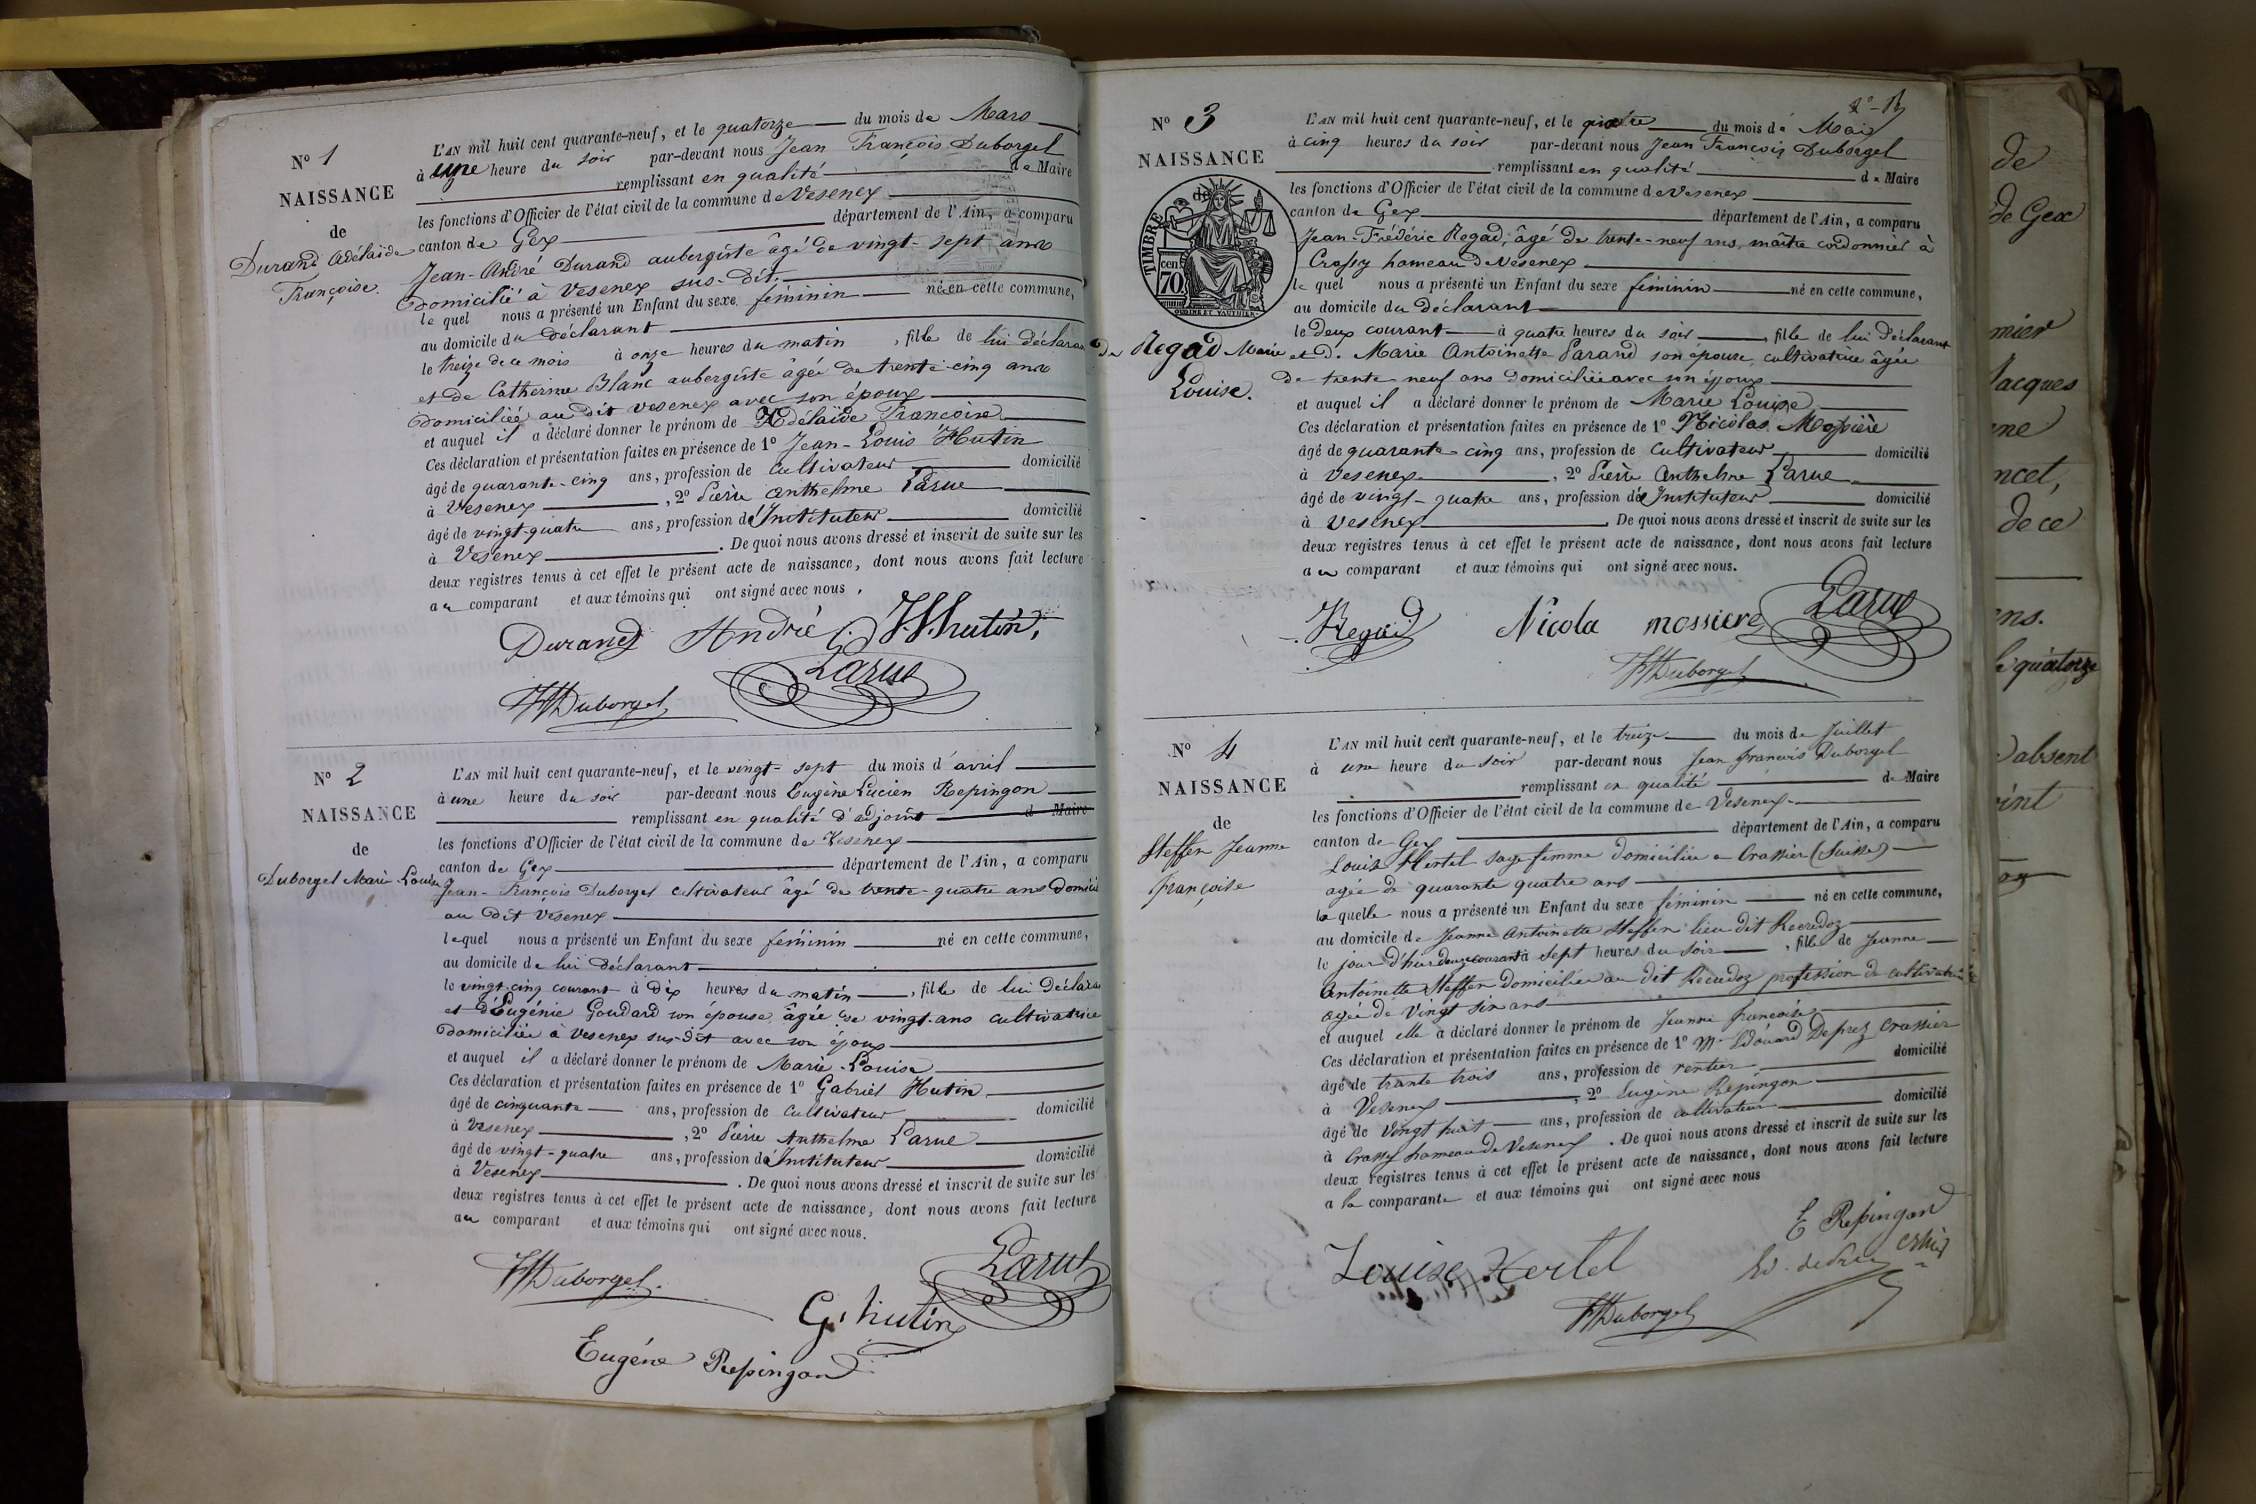 N° 1
NAISSANCE
de
Durand Adélaïde
Françoise.
L'AN mil huit cent quarante-neuf, et le quatorze du mois de Mars
à une heure du soir par-devant nous Jean François Duborgel
remplissant en qualité de Maire
les fonctions d'Officier de l'état civil de la commune de Vesenex
canton de Gex département de l'Ain, a comparu
Jean-André Durand aubergiste âgé de vingt-sept ans
domicilié à Vesenex sus-dit
le quel nous a présenté un Enfant du sexe féminin né en cette commune,
au domicile du déclarant
le treize de ce mois à onze heures du matin, fille de lui déclarant
et de Catherine Blanc aubergiste âgée de trente-cinq ans
domiciliée au dit vesenex avec son époux
et auquel il a déclaré donner le prénom de Adélaïde Françoise
Ces déclaration et présentation faites en présence de 1° Jean-Louis Hutin
âgé de quarante-cinq ans, profession de cultivateur domicilié
à Vesenex, 2° Pierre Anthelme Larue
âgé de vingt-quatre ans, profession d'Instituteur domicilié
à Vesenex. De quoi nous avons dressé et inscrit de suite sur les
deux registres tenus à cet effet le présent acte de naissance, dont nous avons fait lecture
au comparant et aux témoins qui ont signé avec nous,
Durand André. J.L. hutin.
Larue
Duborgel
N° 2
NAISSANCE
de
Duborgel Marie Louise
L'AN mil huit cent quarante-neuf, et le vingt-sept du mois d'avril
à une heure du soir par-devant nous Eugène Lucien Repingon
remplissant en qualité d'adjoint de Maire
les fonctions d'Officier de l'état civil de la commune de Vesenex
canton de Gex département de l'Ain, a comparu
Jean-François Duborgel cultivateur âgé de trente-quatre ans domicilié
au dit Vesenex
lequel nous a présenté un Enfant du sexe féminin né en cette commune,
au domicile de lui déclarant
le vingt-cinq courant à dix heures du matin, fille de lui déclarant
et d'Eugénie Goudard son épouse âgée de vingt-ans cultivatrice
domiciliée à Vesenex sus-dit avec son époux
et auquel il a déclaré donner le prénom de Marie-Louise
Ces déclaration et présentation faites en présence de 1° Gabriel Hutin
âgé de cinquante ans, profession de cultivateur domicilié
à Vesenex, 2° Pierre Anthelme Larue
âgé de vingt-quatre ans, profession d'Instituteur domicilié
à Vesenex. De quoi nous avons dressé et inscrit de suite sur les
deux registres tenus à cet effet le présent acte de naissance, dont nous avons fait lecture
au comparant et aux témoins qui ont signé avec nous.
Duborgel. Larue
G. hutin
Eugène Repingon
N° 3
NAISSANCE
de
TIMBRE
cen 70
OUDINÉ ET VAUTHIER
de Regad Marie
Louise.
L'AN mil huit cent quarante-neuf, et le quatre du mois de Mai
à cinq heures du soir par-devant nous Jean François Duborgel
remplissant en qualité de Maire
les fonctions d'Officier de l'état civil de la commune de Vesenex
canton de Gex département de l'Ain, a comparu
Jean-Frédéric Regad, âgé de trente-neuf ans, maître cordonnier à
Crassy hameau de Vesenex
le quel nous a présenté un Enfant du sexe féminin né en cette commune,
au domicile du déclarant
le deux courant à quatre heures du soir, fille de lui déclarant
et d. Marie Antoinette Parand son épouse, cultivatrice âgée
de trente neuf ans domiciliée avec son époux
et auquel il a déclaré donner le prénom de Marie Louise
Ces déclaration et présentation faites en présence de 1° Nicolas Mossière
âgé de quarante-cinq ans, profession de cultivateur domicilié
à Vesenex, 2° Pierre Anthelme Larue
âgé de vingt-quatre ans, profession d'Instituteur domicilié
à Vesenex. De quoi nous avons dressé et inscrit de suite sur les
deux registres tenus à cet effet le présent acte de naissance, dont nous avons fait lecture
au comparant et aux témoins qui ont signé avec nous.
Regad Nicola mossiere Larue
Duborgel
N° 4
NAISSANCE
de
Steffen Jeanne
françoise
L'AN mil huit cent quarante-neuf, et le treize du mois de Juillet
à une heure du soir par-devant nous Jean françois Duborgel
remplissant en qualité de Maire
les fonctions d'Officier de l'état civil de la commune de Vesenex
canton de Gex département de l'Ain, a comparu
Louise Hertel sage femme domiciliée a Crassier (Suisse)
agée de quarante quatre ans
la quelle nous a présenté un Enfant du sexe féminin né en cette commune,
au domicile de Jeanne Antoinette Steffen lieu dit
le jour d'hier douze courant à sept heures du soir, fille de Jeanne
Antoinette Steffen domiciliée au dit profession de cultivatrice
agée de vingt six ans
et auquel elle a déclaré donner le prénom de Jeanne françoise
Ces déclaration et présentation faites en présence de 1° Mr Edouard Deprez Crassier
âgé de trante trois ans, profession de rentier domicilié
à Vesenex, 2° Eugène Repingon
âgé de vingt huit ans, profession de cultivateur domicilié
à Crassy hameau de Vesenex. De quoi nous avons dressé et inscrit de suite sur les
deux registres tenus à cet effet le présent acte de naissance, dont nous avons fait lecture
a la comparante et aux témoins qui ont signé avec nous
E Repingon
Louise Hertel
Duborgel
de
de Gex
mier
Jacques
ncet,
de ce
ens.
le quatorze
absent
oint